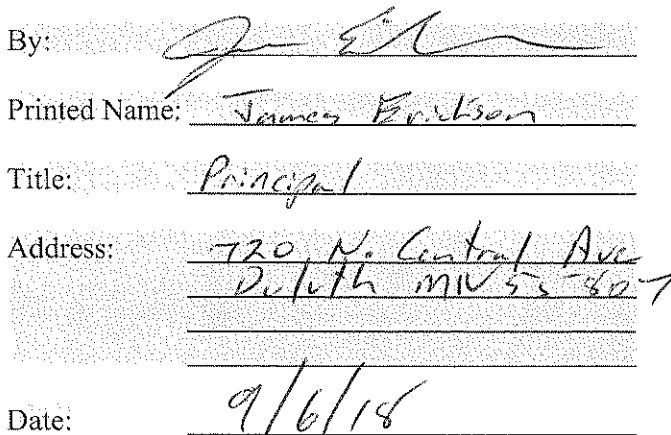 By:
Printed Name: James Erickson
Title: Principal
Address: 720 N. Central Ave
Duluth MN 55807
Date: 9/6/18